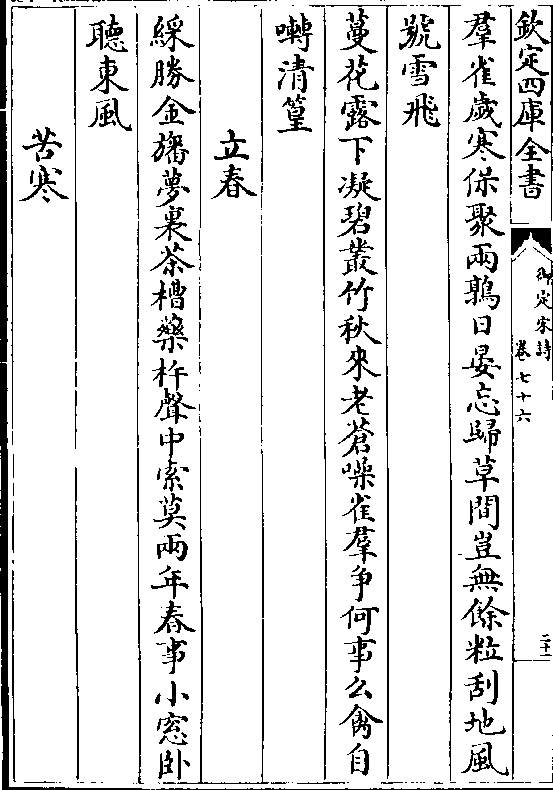 欽定四庫全書
御定宋詩
卷七十六
二十一
羣雀歲寒保聚兩鶉日晏忘歸草間豈無餘粒刮地風
號雪飛
蔓花露下凝碧叢竹秋來老蒼噪雀羣争何事么禽自
囀清篁
立春
綵勝金旛夢裏茶槽藥杵聲中索莫兩年春事小窓卧
聽東風
苦寒